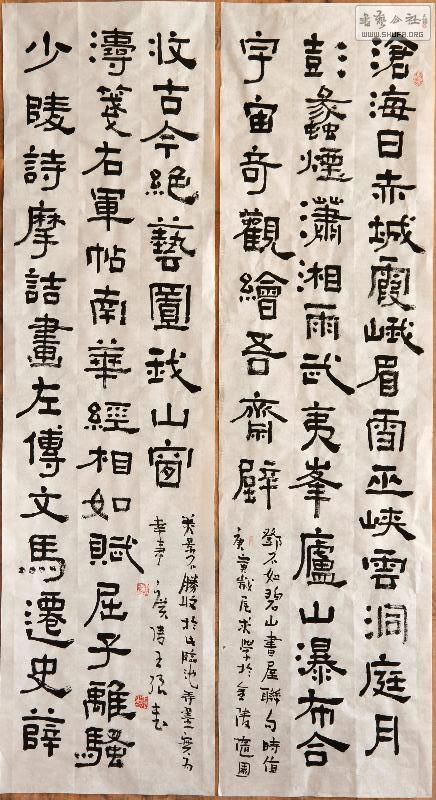 書藝公社
WWW.SHUFA.ORG
滄海日赤城霞峨眉雪巫峽雲洞庭月
彭蠡煙瀟湘雨武夷峯廬山瀑布合
宇宙奇觀繪吾齋壁
鄧石如碧山書屋聯句時值
庚寅歲尾求學於金陵隨園
少陵詩摩詰畫左傳文馬遷史薛
濤箋右軍帖南華經相如賦屈子離騷
收古今絕藝置我山窗
美景不勝收於此臨池弄墨實為
幸事